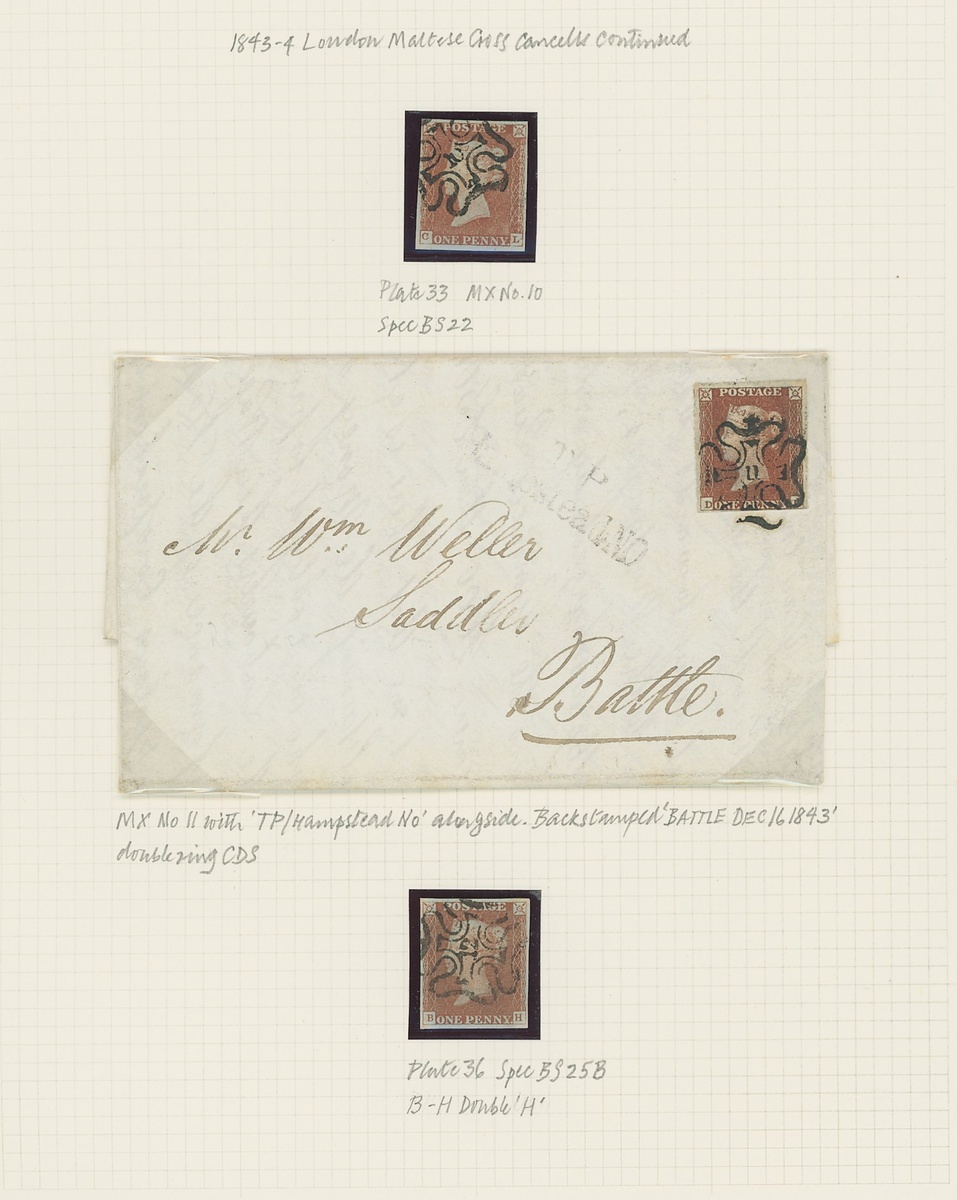 1843-4 London Maltese Cross Cancells Continued
POSTAGE
10
C ONE PENNY L
Plate 33 MX No. 10
Spec BS22
POSTAGE
11
D ONE PENNY
T P
Hampstead NO
Mr. Wm Weller
Saddler
Battle.
MX No 11 with 'TP/Hampstead No' alongside. Backstamped 'BATTLE DEC 16 1843'
double ring CDS
POSTAGE
12
B ONE PENNY H
Plate 36 Spec BS25B
B-H Double 'H'